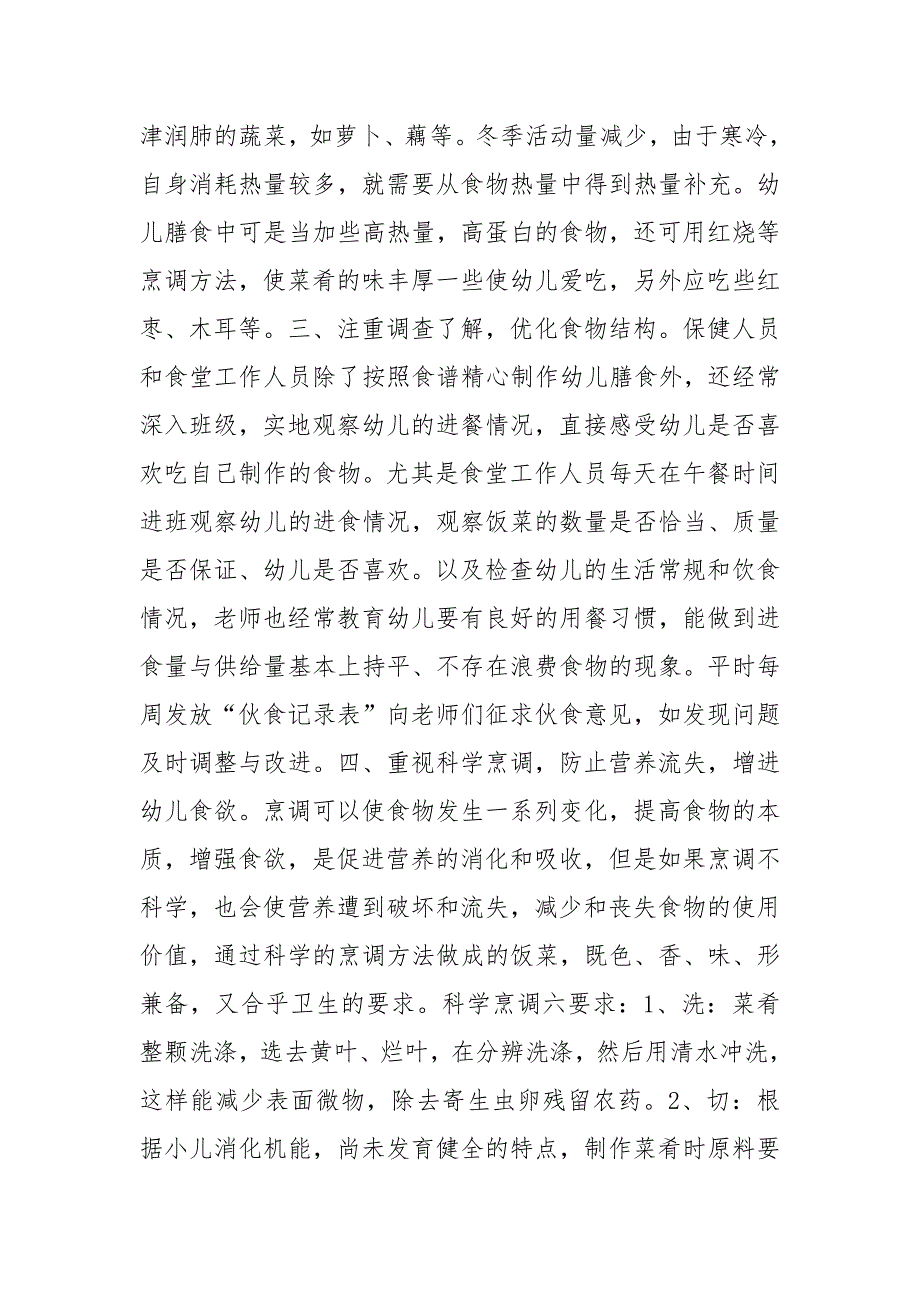 津润肺的蔬菜，如萝卜、藕等。冬季活动量减少，由于寒冷，
自身消耗热量较多，就需要从食物热量中得到热量补充。幼
儿膳食中可是当加些高热量，高蛋白的食物，还可用红烧等
烹调方法，使菜肴的味丰厚一些使幼儿爱吃，另外应吃些红
枣、木耳等。三、注重调查了解，优化食物结构。保健人员
和食堂工作人员除了按照食谱精心制作幼儿膳食外，还经常
深入班级，实地观察幼儿的进餐情况，直接感受幼儿是否喜
欢吃自己制作的食物。尤其是食堂工作人员每天在午餐时间
进班观察幼儿的进食情况，观察饭菜的数量是否恰当、质量
是否保证、幼儿是否喜欢。以及检查幼儿的生活常规和饮食
情况，老师也经常教育幼儿要有良好的用餐习惯，能做到进
食量与供给量基本上持平、不存在浪费食物的现象。平时每
周发放“伙食记录表”向老师们征求伙食意见，如发现问题
及时调整与改进。四、重视科学烹调，防止营养流失，增进
幼儿食欲。烹调可以使食物发生一系列变化，提高食物的本
质，增强食欲，是促进营养的消化和吸收，但是如果烹调不
科学，也会使营养遭到破坏和流失，减少和丧失食物的使用
价值，通过科学的烹调方法做成的饭菜，既色、香、味、形
兼备，又合乎卫生的要求。科学烹调六要求：1、洗：菜肴
整颗洗涤，选去黄叶、烂叶，在分辨洗涤，然后用清水冲洗，
这样能减少表面微物，除去寄生虫卵残留农药。2、切：根
据小儿消化机能，尚未发育健全的特点，制作菜肴时原料要